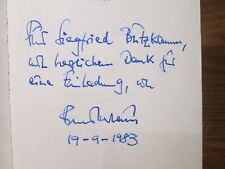 Für Siegfried Butzkamm,
mit herzlichem Dank für
eine Einladung, von
19-9-1983